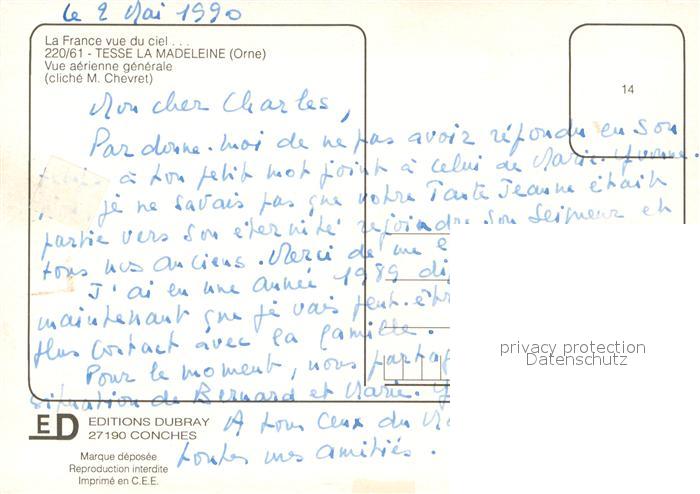 le 2 Mai 1990
La France vue du ciel . . .
220/61 - TESSE LA MADELEINE (Orne)
Vue aérienne générale
(cliché M. Chevret)
14
Mon cher Charles,
Pardonne-moi de ne pas avoir répondu en son
à ton petit mot joint à celui de Marie-Yvonne.
je ne savais pas que votre Tante Jeanne était
partie vers son éternité rejoindre son Seigneur et
tous nos anciens. Merci de me
J'ai eu une année 1989
maintenant que je vais peut-être
plus contact avec la famille.
Pour le moment, nous
situation de Bernard et Marie-
A tous ceux du
toutes mes amitiés.
privacy protection
Datenschutz
ED
EDITIONS DUBRAY
27190 CONCHES
Marque déposée
Reproduction interdite
Imprimé en C.E.E.